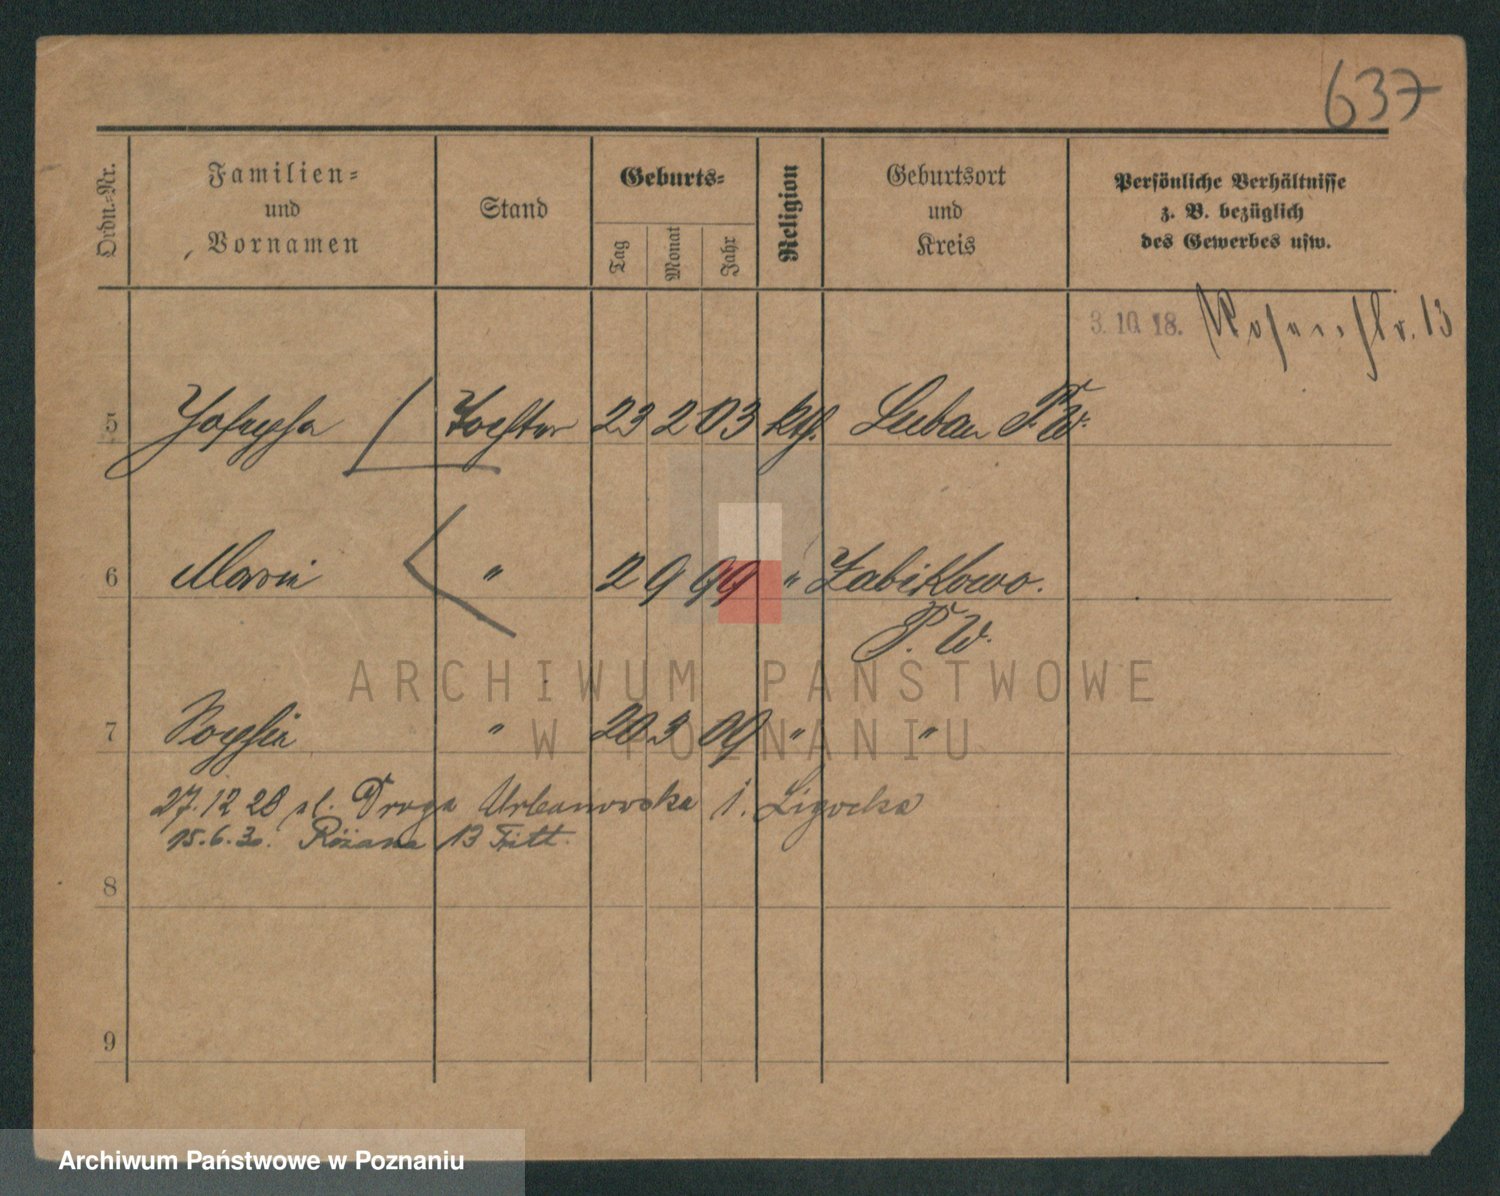 637
Ordn.-Nr.
Familien-
und
Vornamen
Stand
Geburts-
Tag
Monat
Jahr
Religion
Geburtsort
und
Kreis
Persönliche Verhältnisse
z. B. bezüglich
des Gewerbes usw.
3. 10. 18. Rosenstr. 13
5 Josepha Tochter 23 2 03 kth. Luban P. W.
6 Marie " 2 9 99 " Zabikowo.
P. W.
7 Sophie " 20 3 09 " "
27.12 28 ul. Droga Urbanowska
15.6.30. Różana 13
8
9
ARCHIWUM PAŃSTWOWE
W POZNANIU
Archiwum Państwowe w Poznaniu